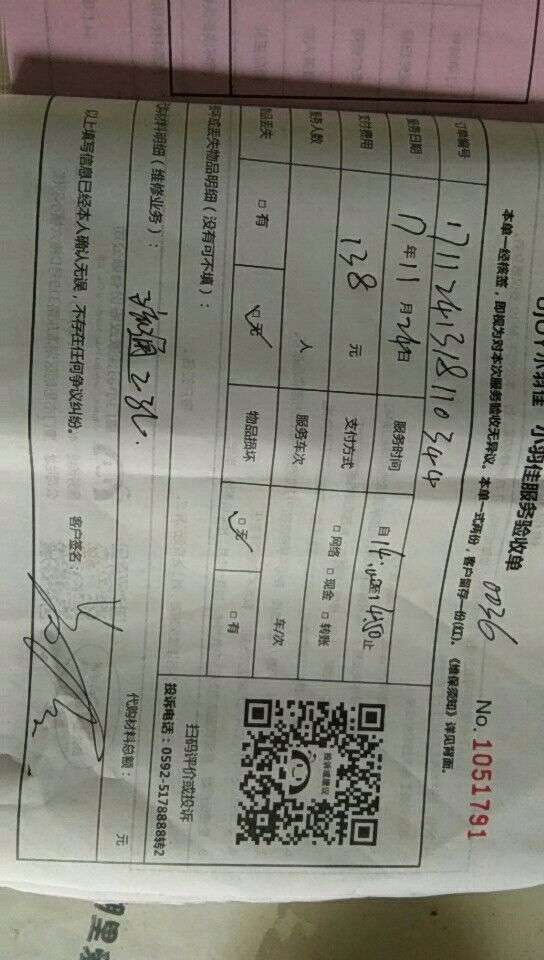 小羽佳 小羽佳服务验收单
0036
No. 1051791
本单一经核签，即视为对本次服务验收无异议。本单一式两份，客户留存一份(红)。《维保须知》详见背面。
订单编号 171124131811034 4
服务日期 17年11月24日 服务时间 自14:00至14:50止
支付费用 138元 支付方式 □网络 □现金 □转账
服务人数 人 服务车次 车/次
物品丢失 □有 □无 物品损坏 □无 □有
损坏或丢失物品明细（没有可不填）：
代购材料明细（维修业务）：
代购材料总额： 元
以上填写信息已经本人确认无误，不存在任何争议纠纷。 客户签名：
投诉或建议
扫码评价或投诉
投诉电话：0592-5178888转2